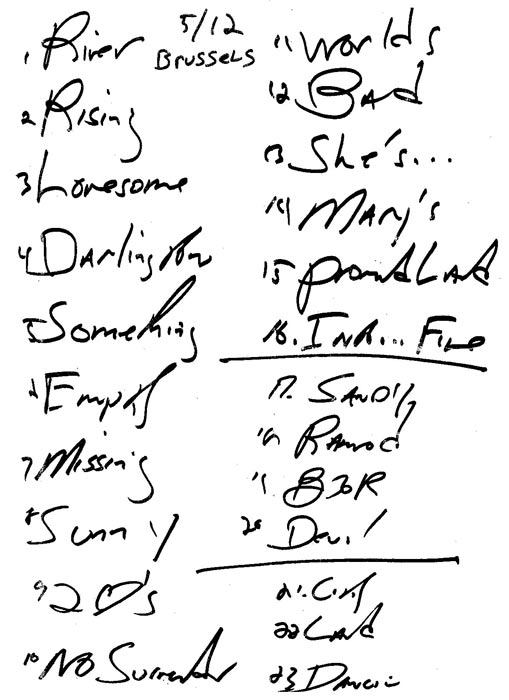 5/12
Brussels
1 River
2 Rising
3 Lonesome
4 Darlington
5 Something
6 Empty
7 Missing
8 Sunny
9 20's
10 No Surrender
11 Worlds
12 Bad
13 She's...
14 Mary's
15 Promised Land
16. Ina... Fire
17. Sandy
18 Ramrod
19 B2R
20 Devil
21. City
22 Land
23 Dancin